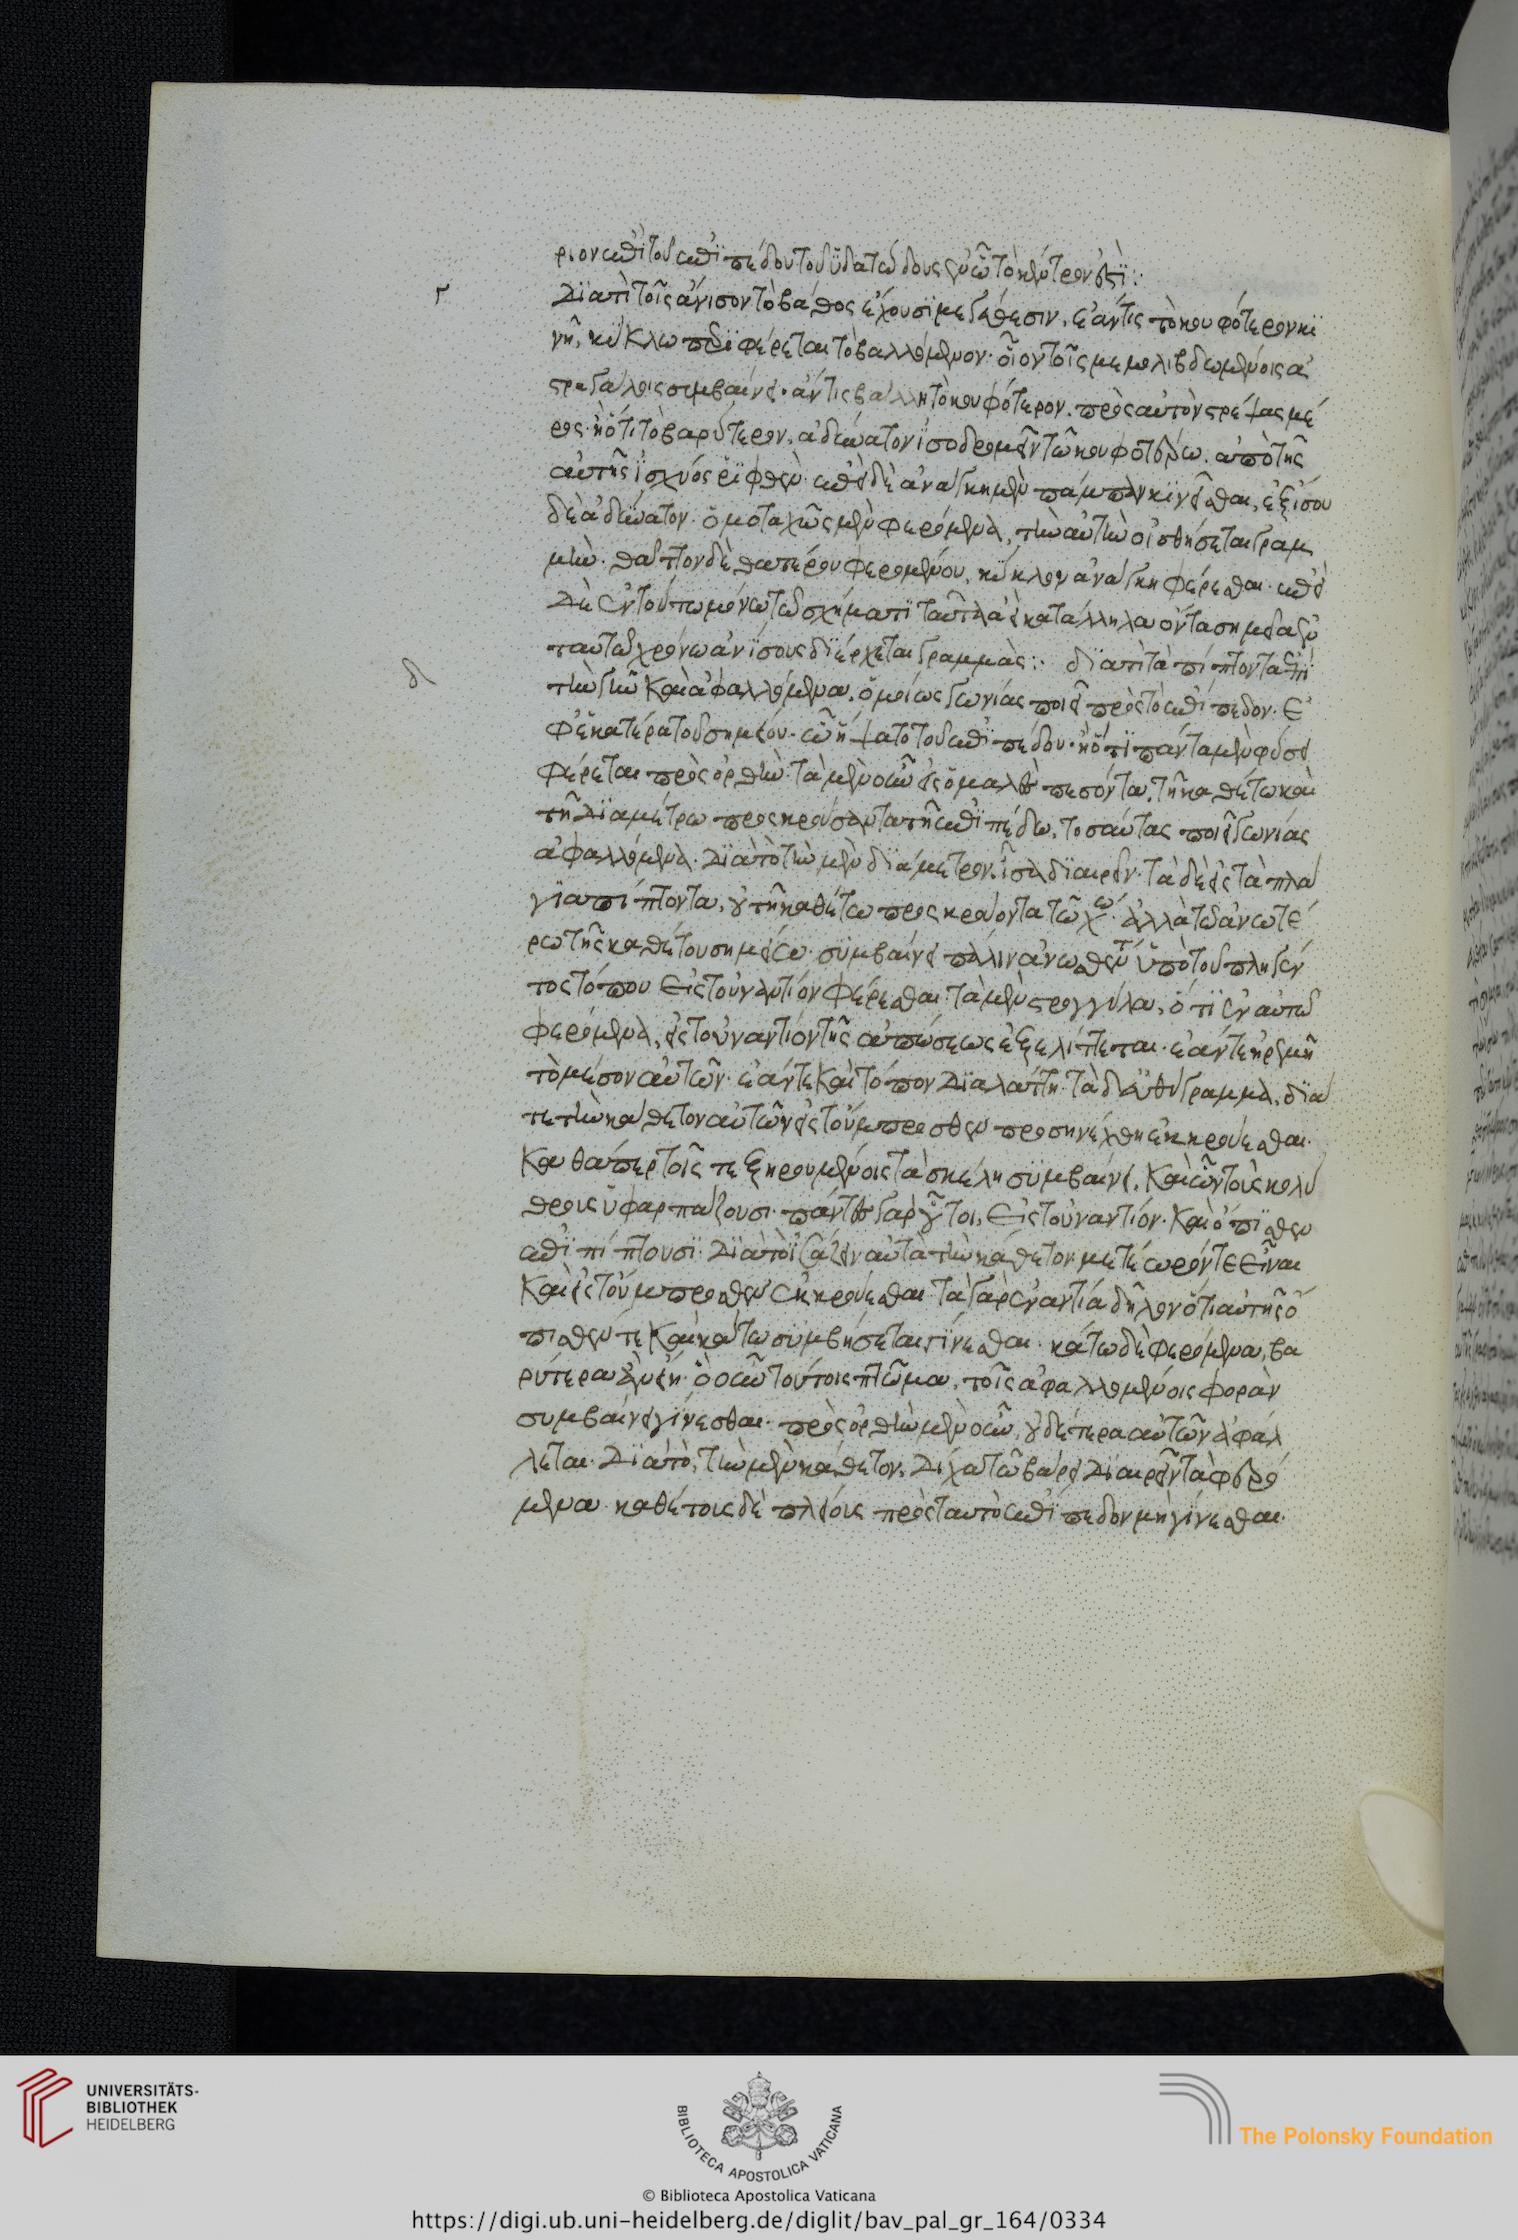 ριον ἐπὶ τοῦ ἐπιπέδου τοῦ ὑδατώδους ἐν ᾧ τὸ κέντρον ἐστὶ:
γ Διατὶ τοῖς ἄνισον τὸ βάθος ἔχουσι μεγέθεσιν, ἐάν τις τὸ κουφότερον κι
νῆ, κύκλω περιφέρεται τὸ βαλλόμενον· οἷον τοῖς μεμολιβδωμένοις ἀ
στραγάλοις συμβαίνει· ἄν τις βάλλη τὸ κουφότερον. πρὸς αὐτὸν στρέψας μέ
ρος· ἢ ὅτι τὸ βαρύτερον, ἀδύνατον ἰσοδρομεῖν τῶ κουφοτέρω. ἀπὸ τῆς
αὐτῆς ἰσχύος ῥιφθὲν· ἐπεὶ δὲ ἀνάγκη μὲν πάμπαν κινεῖσθαι, ἐξίσου
δὲ ἀδύνατον· ὁμοταχῶς μὲν φερόμενα, τὴν αὐτὴν οἰσθήσεται γραμ
μήν· θάττον δὲ θατέρου φερομένου, κύκλον ἀνάγκη φέρεσθαι· ἐπεὶ
δὲ ἐν τούτω μόνω τῶ σχήματι ταῦτα ἀεὶ κατάλληλα ὄντα σημεῖα ἐν
ταυτῶ χρόνω ἀνίσους διέρχεται γραμμὰς: διατὶ τὰ πίπτοντα ἐπὶ
δ τὴν γῆν καὶ ἀφαλλόμενα, ὁμοίως γωνίας ποιεῖ πρὸς τὸ ἐπίπεδον· ἐ
φ' ἑκατέρα τοῦ σημείου· οὗ ἥψατο τοῦ ἐπιπέδου· ἢ ὅτι πάντα μὲν φύσει
φέρεται πρὸς ὀρθὴν· τὰ μὲν οὖν εἰς ὁμαλὸν πεσόντα, τῆ καθέτω καὶ
τῆ διαμέτρω προσκρούσαντα τῆ ἐπιπέδω, τοσαύτας ποιεῖ γωνίας
ἀφαλλόμενα· διὰ τὸ τὴν μὲν διάμετρον, ἴσα διαιρεῖν· τὰ δὲ εἰς τὰ πλά
για πίπτοντα, οὐ τῆ καθέτω προσκρούοντα τῶ χω· ἀλλὰ τῶ ἀνωτέ
ρω τῆς καθέτου σημείω· συμβαίνει πάλιν ἄνωθεν τε ὑπὸ τοῦ πληγέν
τος τόπου εἰς τοὐναντίον φέρεσθαι· τὰ μὲν στρογγύλα, ὅτι ἐν αὐτῶ
φερόμενα, εἰς τοὐναντίον τῆς ἀπώσεως ἐξελίττεται· ἐάν τε ἠρεμῆ
τὸ μέσον αὐτῶν· ἐάν τε καὶ τόπον διαλάττη· τὰ δ' εὐθύγραμμα, διά
τε τὴν κάθετον αὐτῶν εἰς τοὔμπροσθεν προσηνέχθη ἐκκρούεσθαι·
καθάπερ τοῖς τε ξηρουμένοις τὰ σκέλη συμβαίνει, καὶ ὧν τοὺς κολύ
θροις ὑφαρπάζουσι· πάντες γὰρ οὗτοι, εἰς τοὐναντίον· καὶ ὄπισθεν
ἐπιπίπτουσι· διὰ τὸ ἰσάζειν αὐτὰ τὴν κάθετον μετέωρόν τε εἶναι
καὶ εἰς τοὔμπροσθεν ἐκκρούεσθαι· τὰ γὰρ ἐναντία δῆλον ὅτι αὐτῆς ὄ
πισθέν τε καὶ κάτω συμβήσεται γίνεσθαι· κάτω δὲ φερόμενα, βα
ρύτερα ἂν εἴη· ὃ οὖν τούτοις πτῶμα, τοῖς ἀφαλλομένοις φορὰν
συμβαίνει γίνεσθαι· πρὸς ὀρθὴν μὲν οὖν, οὐδέτερα αὐτῶν ἀφάλ
λεται· διὰ τὸ, τὴν μὲν κάθετον, δίχα τῶ βάρει διαιρεῖν τὰ φερό
μενα· καθέτους δὲ πλείους πρὸς ταυτὸ ἐπίπεδον μὴ γίνεσθαι·
UNIVERSITÄTS-
BIBLIOTHEK
HEIDELBERG
BIBLIOTECA APOSTOLICA VATICANA
The Polonsky Foundation
© Biblioteca Apostolica Vaticana
https://digi.ub.uni-heidelberg.de/diglit/bav_pal_gr_164/0334